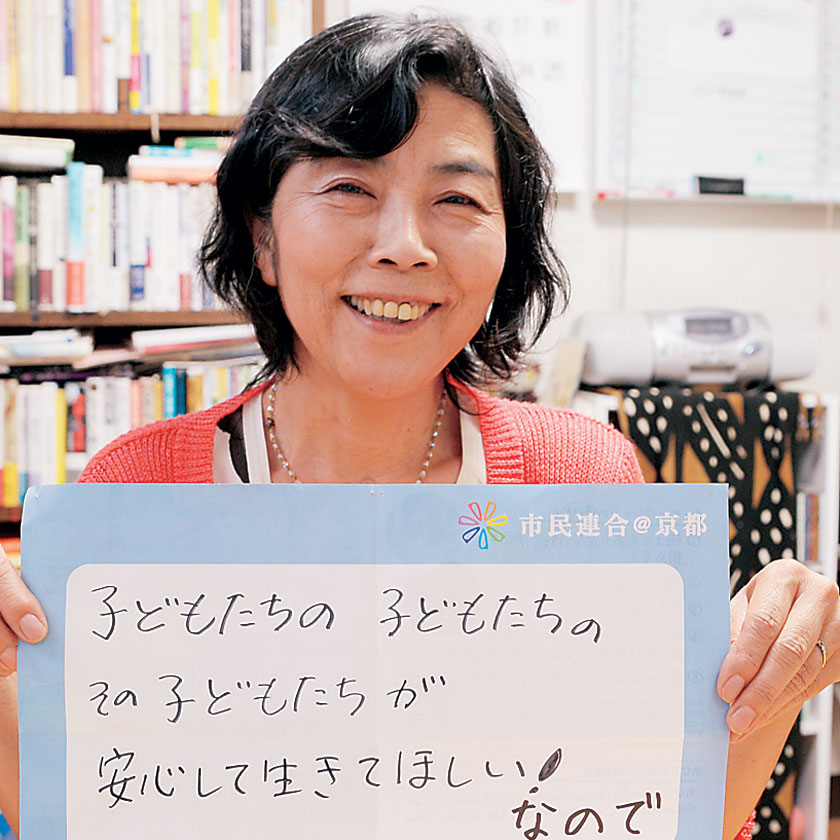 市民連合@京都
子どもたちの 子どもたちの
その子どもたちが
安心して生きてほしい!
なので